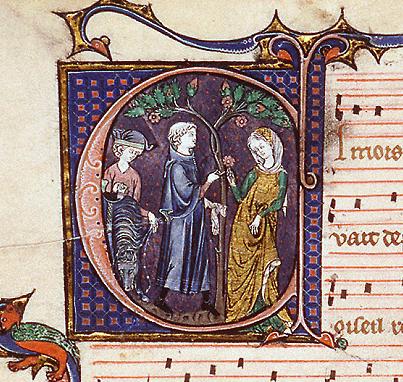 El mois
vait de
oiseil re